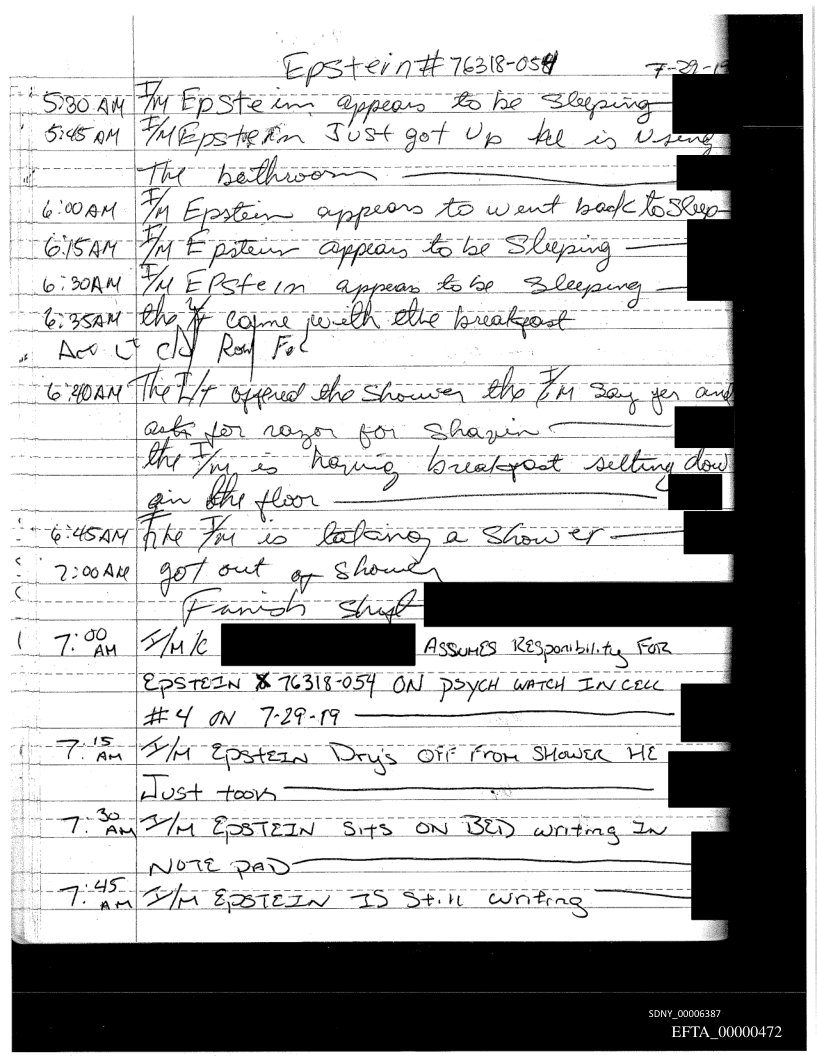 Epstein # 76318-054 7-29-19
5:30 AM I/M Epstein appears to be sleeping
5:45 AM I/M Epstein Just got up he is using
The bathroom
6:00 AM I/M Epstein appears to went back to sleep
6:15 AM I/M Epstein appears to be Sleeping
6:30 AM I/M EPStein appears to be sleeping
6:35 AM the came with the breakfast
6:40 AM The L/T offered the shower the I/M say yes and
ask for razor for shavin
the I/M is having breakfast setting dow
in the floor
6:45 AM The I/M is taking a shower
7:00 AM got out of shower
Fanish Shift
7:00 AM I/M/C ASSUMES RESponibility FOR
EPSTEIN # 76318-054 ON PSYCH WATCH IN CELL
#4 ON 7-29-19
7:15 AM I/M EpstEIN Dry's OFF From SHOWER HE
Just took
7:30 AM I/M EPSTEIN SitS ON BED writing IN
NOTE PAD
7:45 AM I/M EPSTEIN IS Still writing
SDNY_00006387
EFTA_00000472